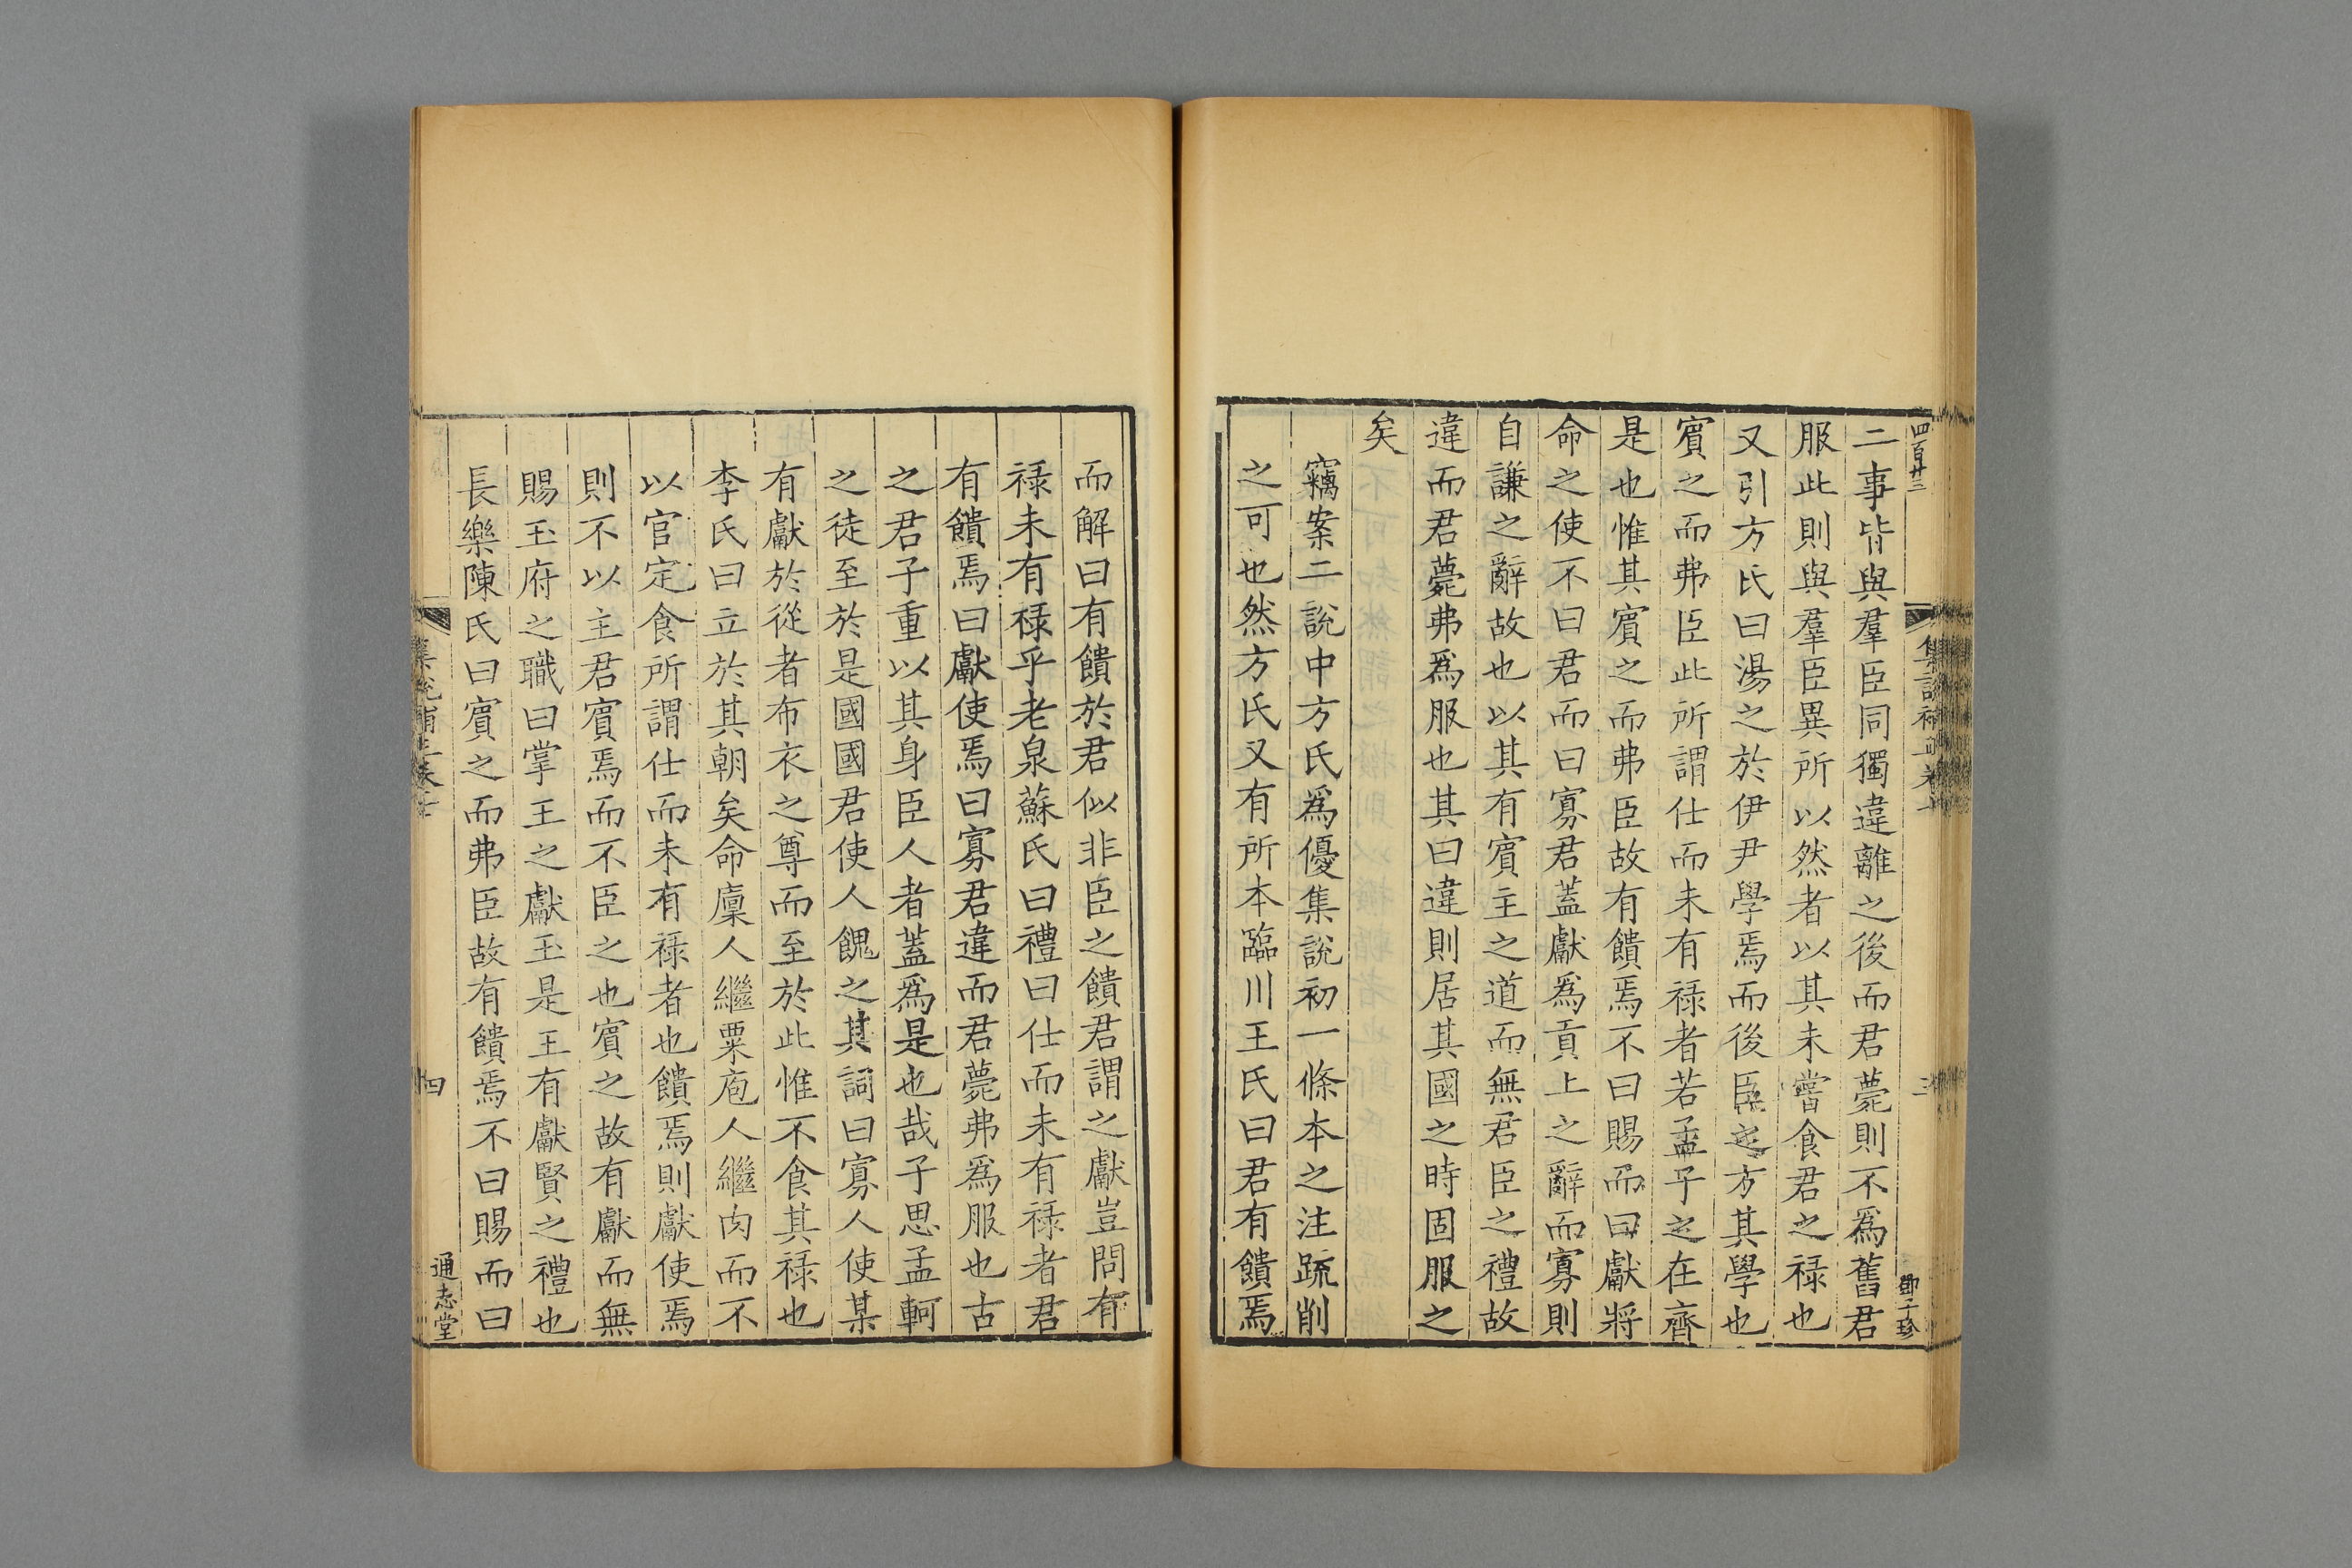 四百廿三
鄧子珍
二事皆與羣臣同獨違離之後而君薨則不爲舊君
服此則與羣臣異所以然者以其未嘗食君之祿也
又引方氏曰湯之於伊尹學焉而後臣之方其學也
賓之而弗臣此所謂仕而未有祿者若孟子之在齊
是也惟其賓之而弗臣故有饋焉不曰賜而曰獻將
命之使不曰君而曰寡君蓋獻爲貢上之辭而寡則
自謙之辭故也以其有賓主之道而無君臣之禮故
違而君薨弗爲服也其曰違則居其國之時固服之
矣
竊案二說中方氏爲優集說初一條本之注疏削
之可也然方氏又有所本臨川王氏曰君有饋焉
而解曰有饋於君似非臣之饋君謂之獻豈問有
祿未有祿乎老泉蘇氏曰禮曰仕而未有祿者君
有饋焉曰獻使焉曰寡君違而君薨弗爲服也古
之君子重以其身臣人者蓋爲是也哉子思孟軻
之徒至於是國國君使人餽之其詞曰寡人使某
有獻於從者布衣之尊而至於此惟不食其祿也
李氏曰立於其朝矣命廩人繼粟庖人繼肉而不
以官定食所謂仕而未有祿者也饋焉則獻使焉
則不以主君賓焉而不臣之也賓之故有獻而無
賜玉府之職曰掌王之獻玉是王有獻賢之禮也
長樂陳氏曰賓之而弗臣故有饋焉不曰賜而曰
四
通志堂